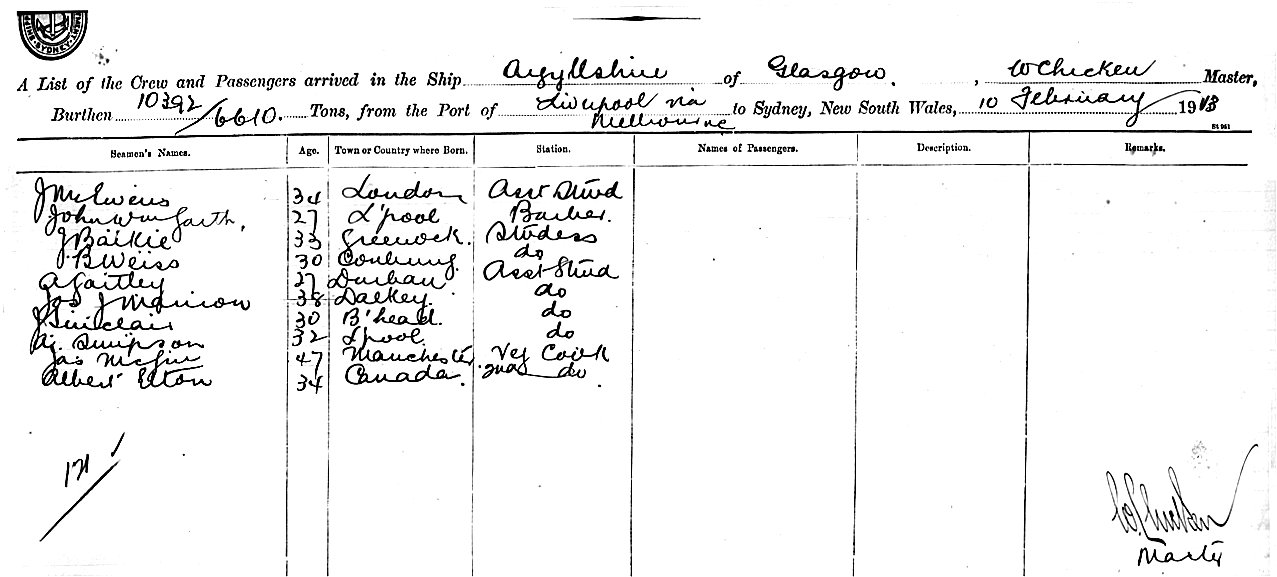 SYDNEY
A List of the Crew and Passengers arrived in the Ship Argyllshire of Glasgow, W Chicken Master,
Burthen 10392/6610. Tons, from the Port of Liverpool via Melbourne to Sydney, New South Wales, 10 February 1913
Seamen's Names. Age. Town or Country where Born. Station. Names of Passengers. Description. Remarks.
J McEwens 34 London Asst Stwd
John Wm Garth, 27 L'pool Barber.
J Baikie 33 Greenock. Stwdess
B Weiss 30 do
A Gaitley 27 Durban Asst Stwd
Jos J Mannion 38 Dalkey. do
J Sinclair 30 B'head. do
A. Simpson 32 L'pool. do
Jas McGin 47 Manchester Veg Cook
Albert Elton 34 Canada. 2nd do
171
W. Chicken
Master